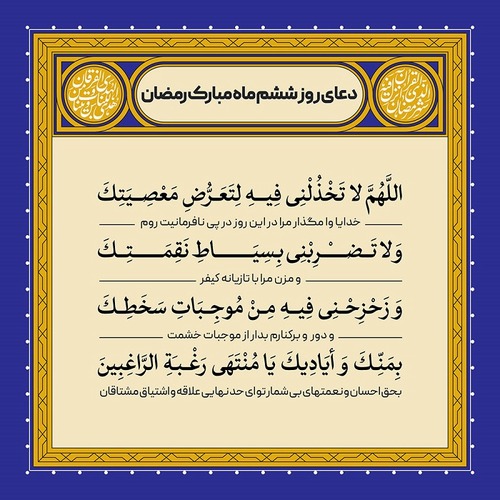 دعای روز ششم ماه مبارک رمضان
اللَّهُمَّ لا تَخْذُلْنِی فِیهِ لِتَعَرُّضِ مَعْصِیَتِكَ
خدایا وا مگذار مرا در این روز در پی نافرمانیت روم
وَلا تَضْرِبْنِی بِسِیَاطِ نَقِمَتِكَ
و مزن مرا با تازیانه کیفر
وَ زَحْزِحْنِی فِیهِ مِنْ مُوجِبَاتِ سَخَطِكَ
و دور و برکنارم بدار از موجبات خشمت
بِمَنِّكَ وَ أَیَادِیكَ یَا مُنْتَهَى رَغْبَةِ الرَّاغِبِینَ
بحق احسان و نعمتهای بی شمار تو ای حد نهایی علاقه و اشتیاق مشتاقان